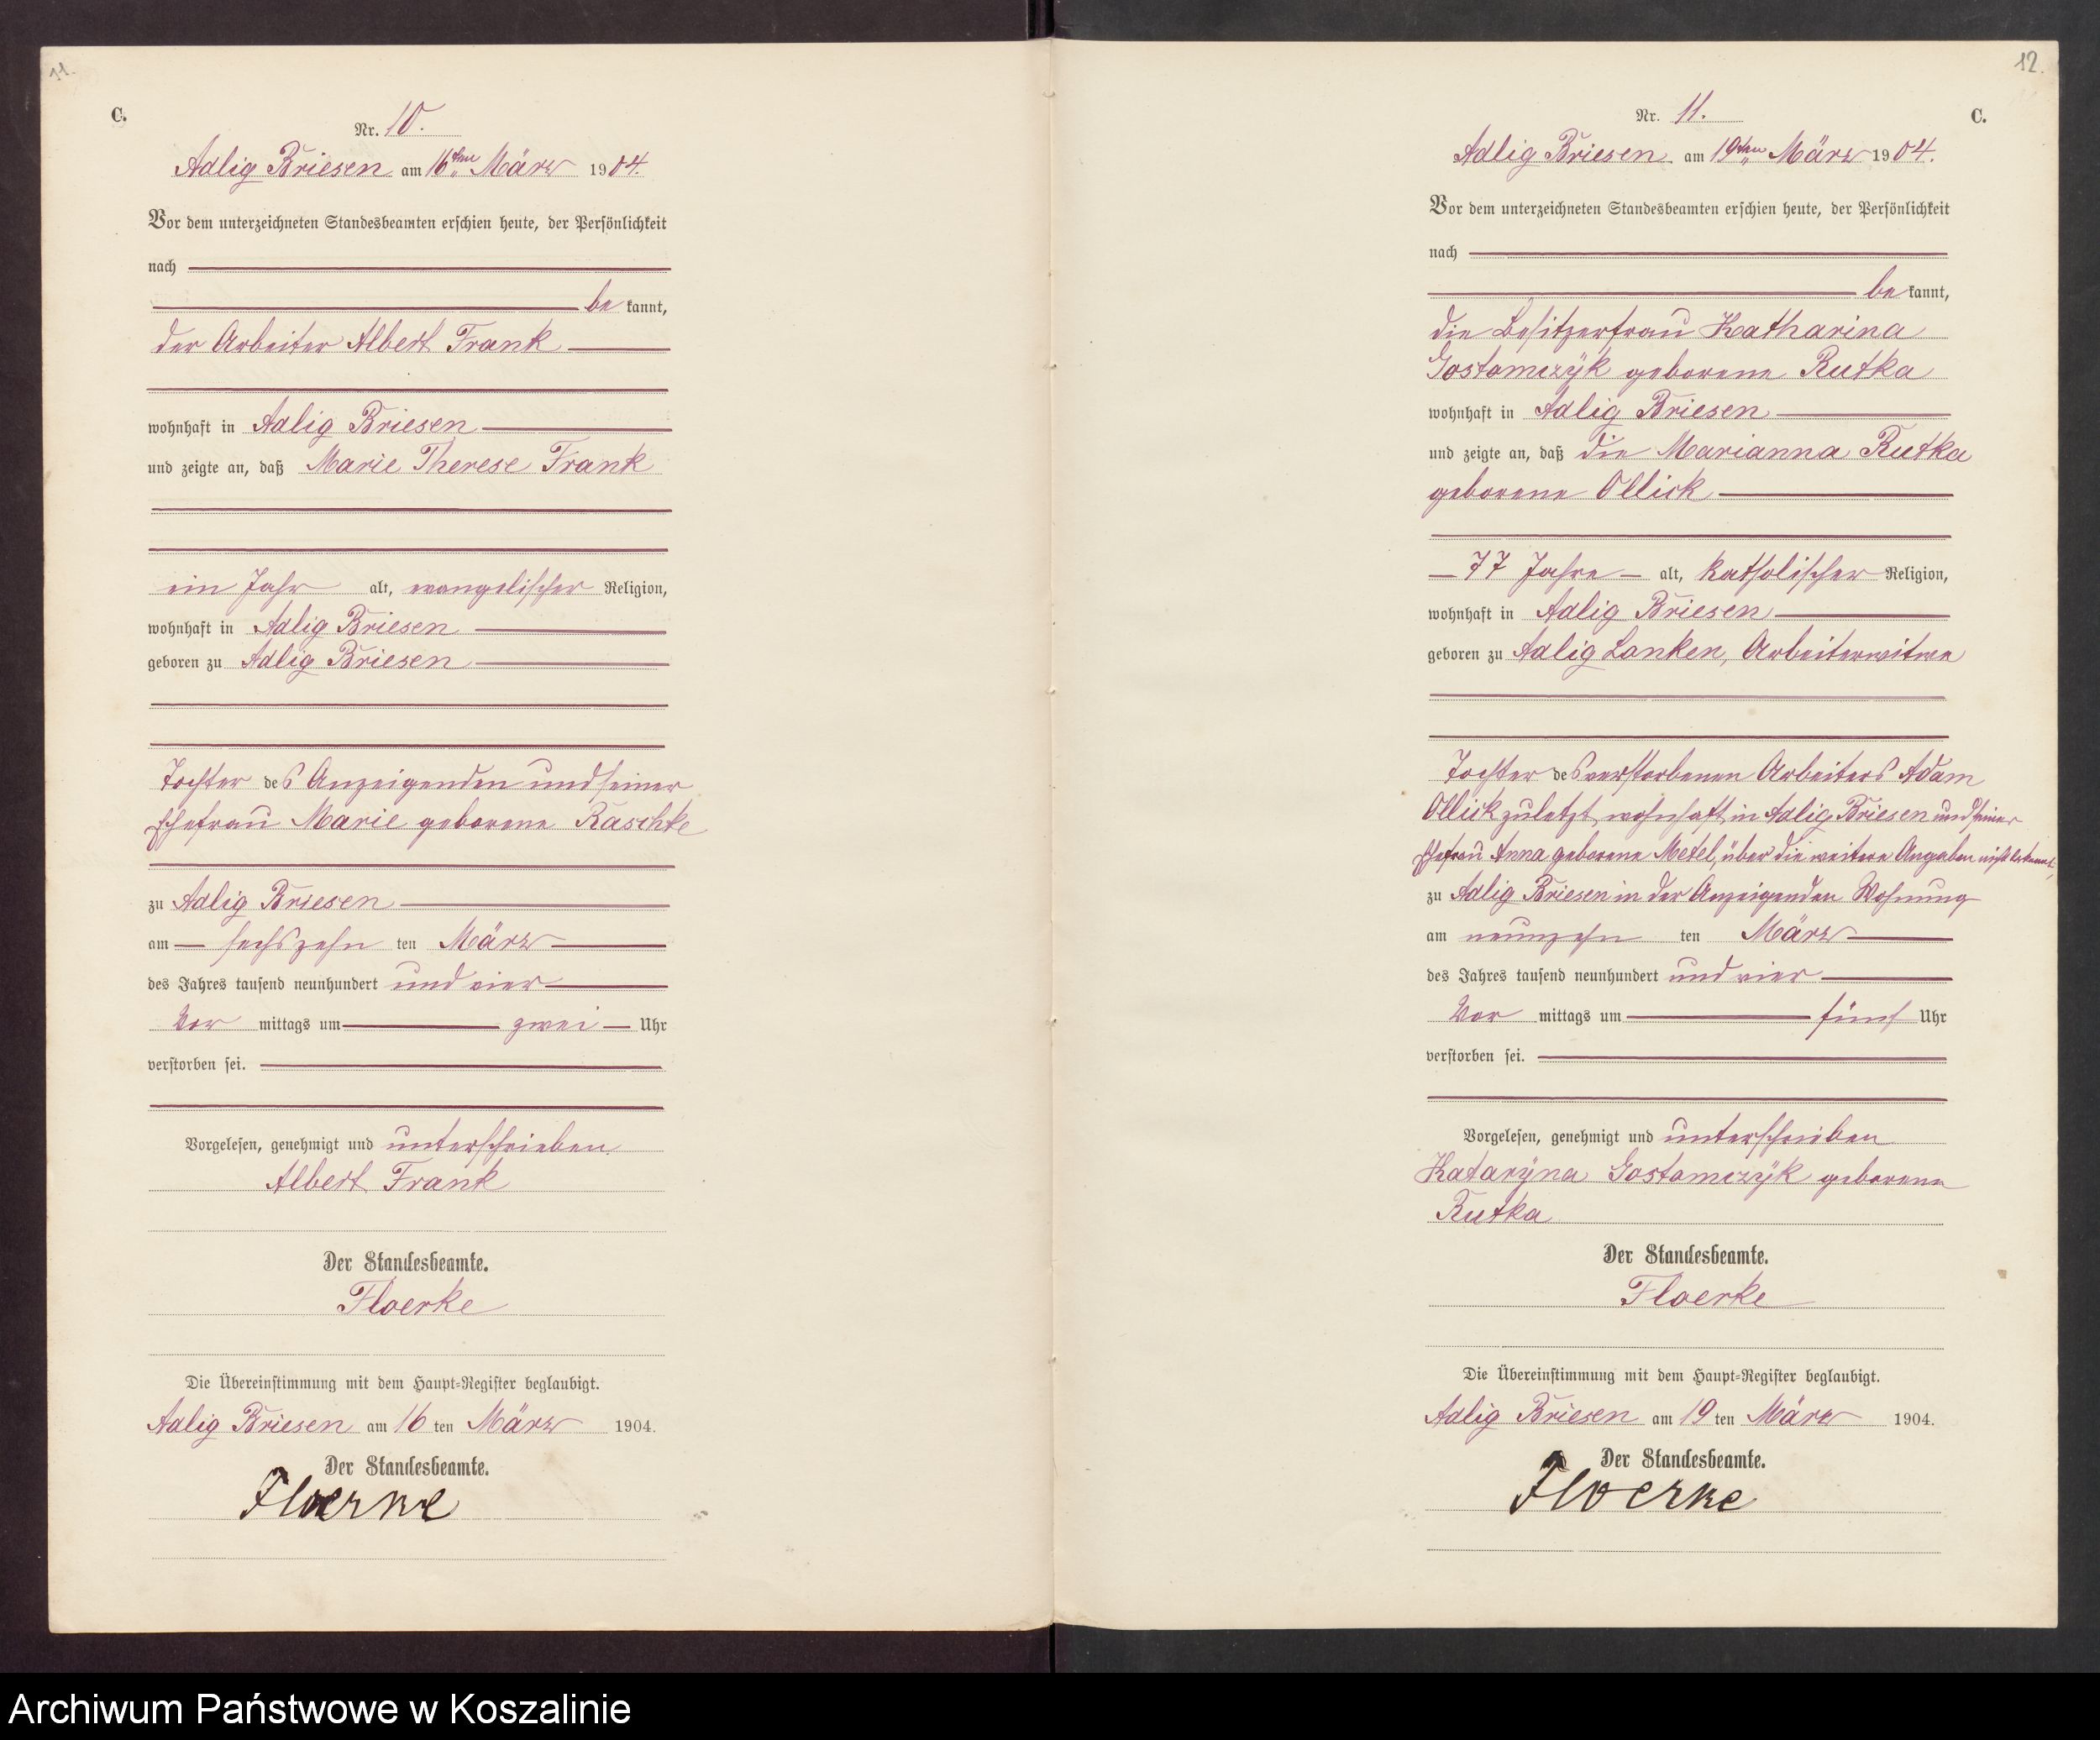 11.
C.
Nr. 10.
Adlig Briesen am 16ten März 1904.
Vor dem unterzeichneten Standesbeamten erschien heute, der Persönlichkeit
nach
be kannt,
der Arbeiter Albert Frank
wohnhaft in Adlig Briesen
und zeigte an, daß Marie Therese Frank
ein Jahr alt, evangelischer Religion,
wohnhaft in Adlig Briesen
geboren zu Adlig Briesen
Tochter des Anzeigenden und seiner
Ehefrau Marie geborene Raschke
zu Adlig Briesen
am sechszehn ten März
des Jahres tausend neunhundert und vier
Vor mittags um zwei Uhr
verstorben sei.
Vorgelesen, genehmigt und unterschrieben
Albert Frank
Der Standesbeamte.
Floerke
Die Übereinstimmung mit dem Haupt-Register beglaubigt.
Adlig Briesen am 16 ten März 1904.
Der Standesbeamte.
Floerke
12.
C.
Nr. 11.
Adlig Briesen am 19ten März 1904.
Vor dem unterzeichneten Standesbeamten erschien heute, der Persönlichkeit
nach
be kannt,
die Besitzerfrau Katharina
Gostomczÿk geborene Rutka
wohnhaft in Adlig Briesen
und zeigte an, daß die Marianna Rutka
geborene Ollick
77 Jahre alt, katholischer Religion,
wohnhaft in Adlig Briesen
geboren zu Adlig Lanken, Arbeiterwitwe
Tochter des verstorbenen Arbeiters Adam
Ollick zuletzt wohnhaft in Adlig Briesen und seiner
Ehefrau Anna geborene Metel, über die weitere Angaben nicht bekannt,
zu Adlig Briesen in der Anzeigenden Wohnung
am neunzehn ten März
des Jahres tausend neunhundert und vier
Vor mittags um fünf Uhr
verstorben sei.
Vorgelesen, genehmigt und unterschrieben
Katarÿna Gostomczÿk geborene
Rutka
Der Standesbeamte.
Floerke
Die Übereinstimmung mit dem Haupt-Register beglaubigt.
Adlig Briesen am 19 ten März 1904.
Der Standesbeamte.
Floerke
Archiwum Państwowe w Koszalinie